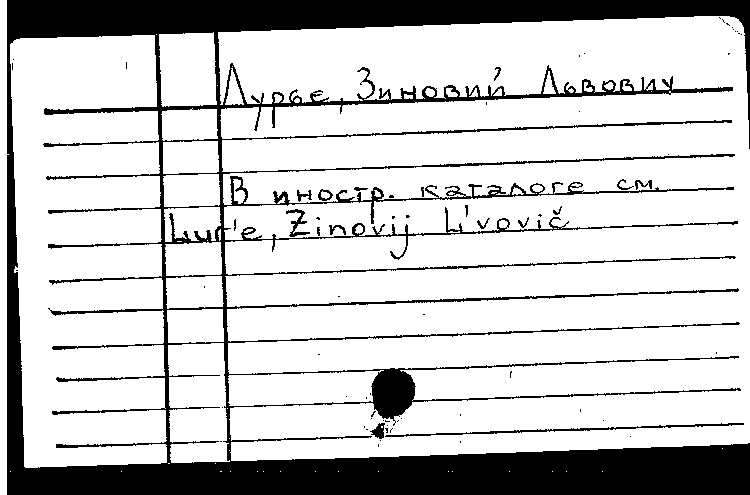 Лурье, Зиновий Львович
В иностр. каталоге см.
Lur'e, Zinovij L'vovič